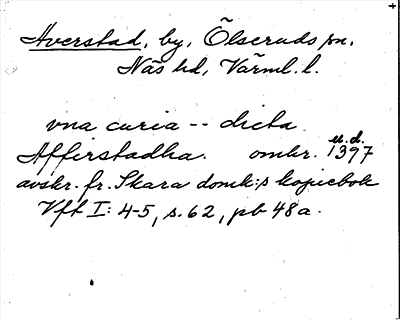 Averstad, by, Ölseruds sn,
Näs hd, Värml. l.
vna curia -- dicta
u.d.
Afferstadha. omkr. 1397
avskr. fr. Skara domk:s kopiebok
Vft I: 4-5, s. 62, pb 48a.